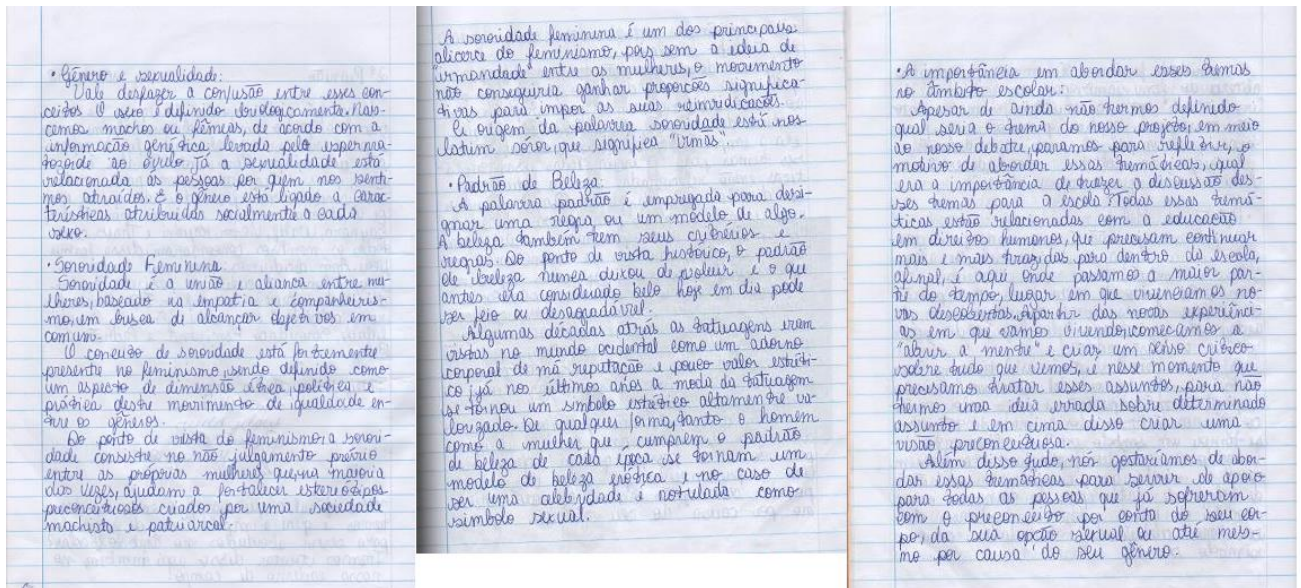 • Gênero e sexualidade:
Vale desfazer a confusão entre esses con-
ceitos. O sexo é definido biologicamente. Nas-
cemos machos ou fêmeas, de acordo com a
informação genética levada pelo esperma-
tozoide ao óvulo. Já a sexualidade está
relacionada às pessoas por quem nos senti-
mos atraídos. E o gênero está ligado a carac-
terísticas atribuídas socialmente a cada
sexo.
• Sororidade Feminina
Sororidade é a união e aliança entre mu-
lheres, baseado na empatia e companheiris-
mo, em busca de alcançar objetivos em
comum.
O conceito de sororidade está fortemente
presente no feminismo, sendo definido como
um aspecto de dimensão ética, política e
prática deste movimento de igualdade en-
tre os gêneros.
Do ponto de vista do feminismo a sorori-
dade consiste no não julgamento prévio
entre as próprias mulheres que, na maioria
das vezes, ajudam a fortalecer estereótipos
preconceituosos criados por uma sociedade
machista e patriarcal.
A sororidade feminina é um dos principais
alicerce do feminismo, pois sem a ideia de
"irmandade" entre as mulheres, o movimento
não conseguiria ganhar proporções significa-
tivas para impor as suas reinvidicações.
A origem da palavra sororidade está no
latim sóror, que significa "irmãs".
• Padrão de Beleza
A palavra padrão é empregada para desi-
gnar uma regra ou um modelo de algo.
A beleza também tem seus critérios e
regras. Do ponto de vista histórico, o padrão
de beleza nunca deixou de evoluir e o que
antes era considerado belo hoje em dia pode
ser feio ou desagradável.
Algumas décadas atrás as tatuagens eram
vistas no mundo ocidental como um "adorno
corporal de má reputação e pouco valor estéti-
co, já nos últimos anos a moda da tatuagem
se tornou um símbolo estético altamente va-
lorizado. De qualquer forma, tanto o homem
como a mulher que cumprem o padrão
de beleza de cada época se tornam um
modelo de beleza erótica e no caso de
ser uma celebridade é rotulada como
símbolo sexual.
• A importância em abordar esses temas
no âmbito escolar:
Apesar de ainda não termos definido
qual seria o tema do nosso projeto, em meio
ao nosso debate, paramos para refletir, o
motivo de abordar essas temáticas, qual
era a importância de trazer a discussão des-
ses temas para a escola. Todas essas temá-
ticas estão relacionadas com a educação
em direitos humanos, que precisam continuar
mais e mais trazidas para dentro da escola,
afinal, é aqui onde passamos a maior par-
te do tempo, lugar em que vivenciamos no-
vas descobertas. Apartir das novas experiênci-
as em que vamos vivendo, começamos a
"abrir a mente" e criar um senso crítico
sobre tudo que vemos, é nesse momento que
precisamos tratar esses assuntos, para não
termos uma ideia errada sobre determinado
assunto e em cima disso criar uma
visão preconceituosa.
Além disso tudo, nós gostaríamos de abor-
dar essas temáticas para servir de apoio
para todas as pessoas que já sofreram
com o preconceito por conta do seu cor-
po, da sua opção sexual ou até mes-
mo por causa do seu gênero.